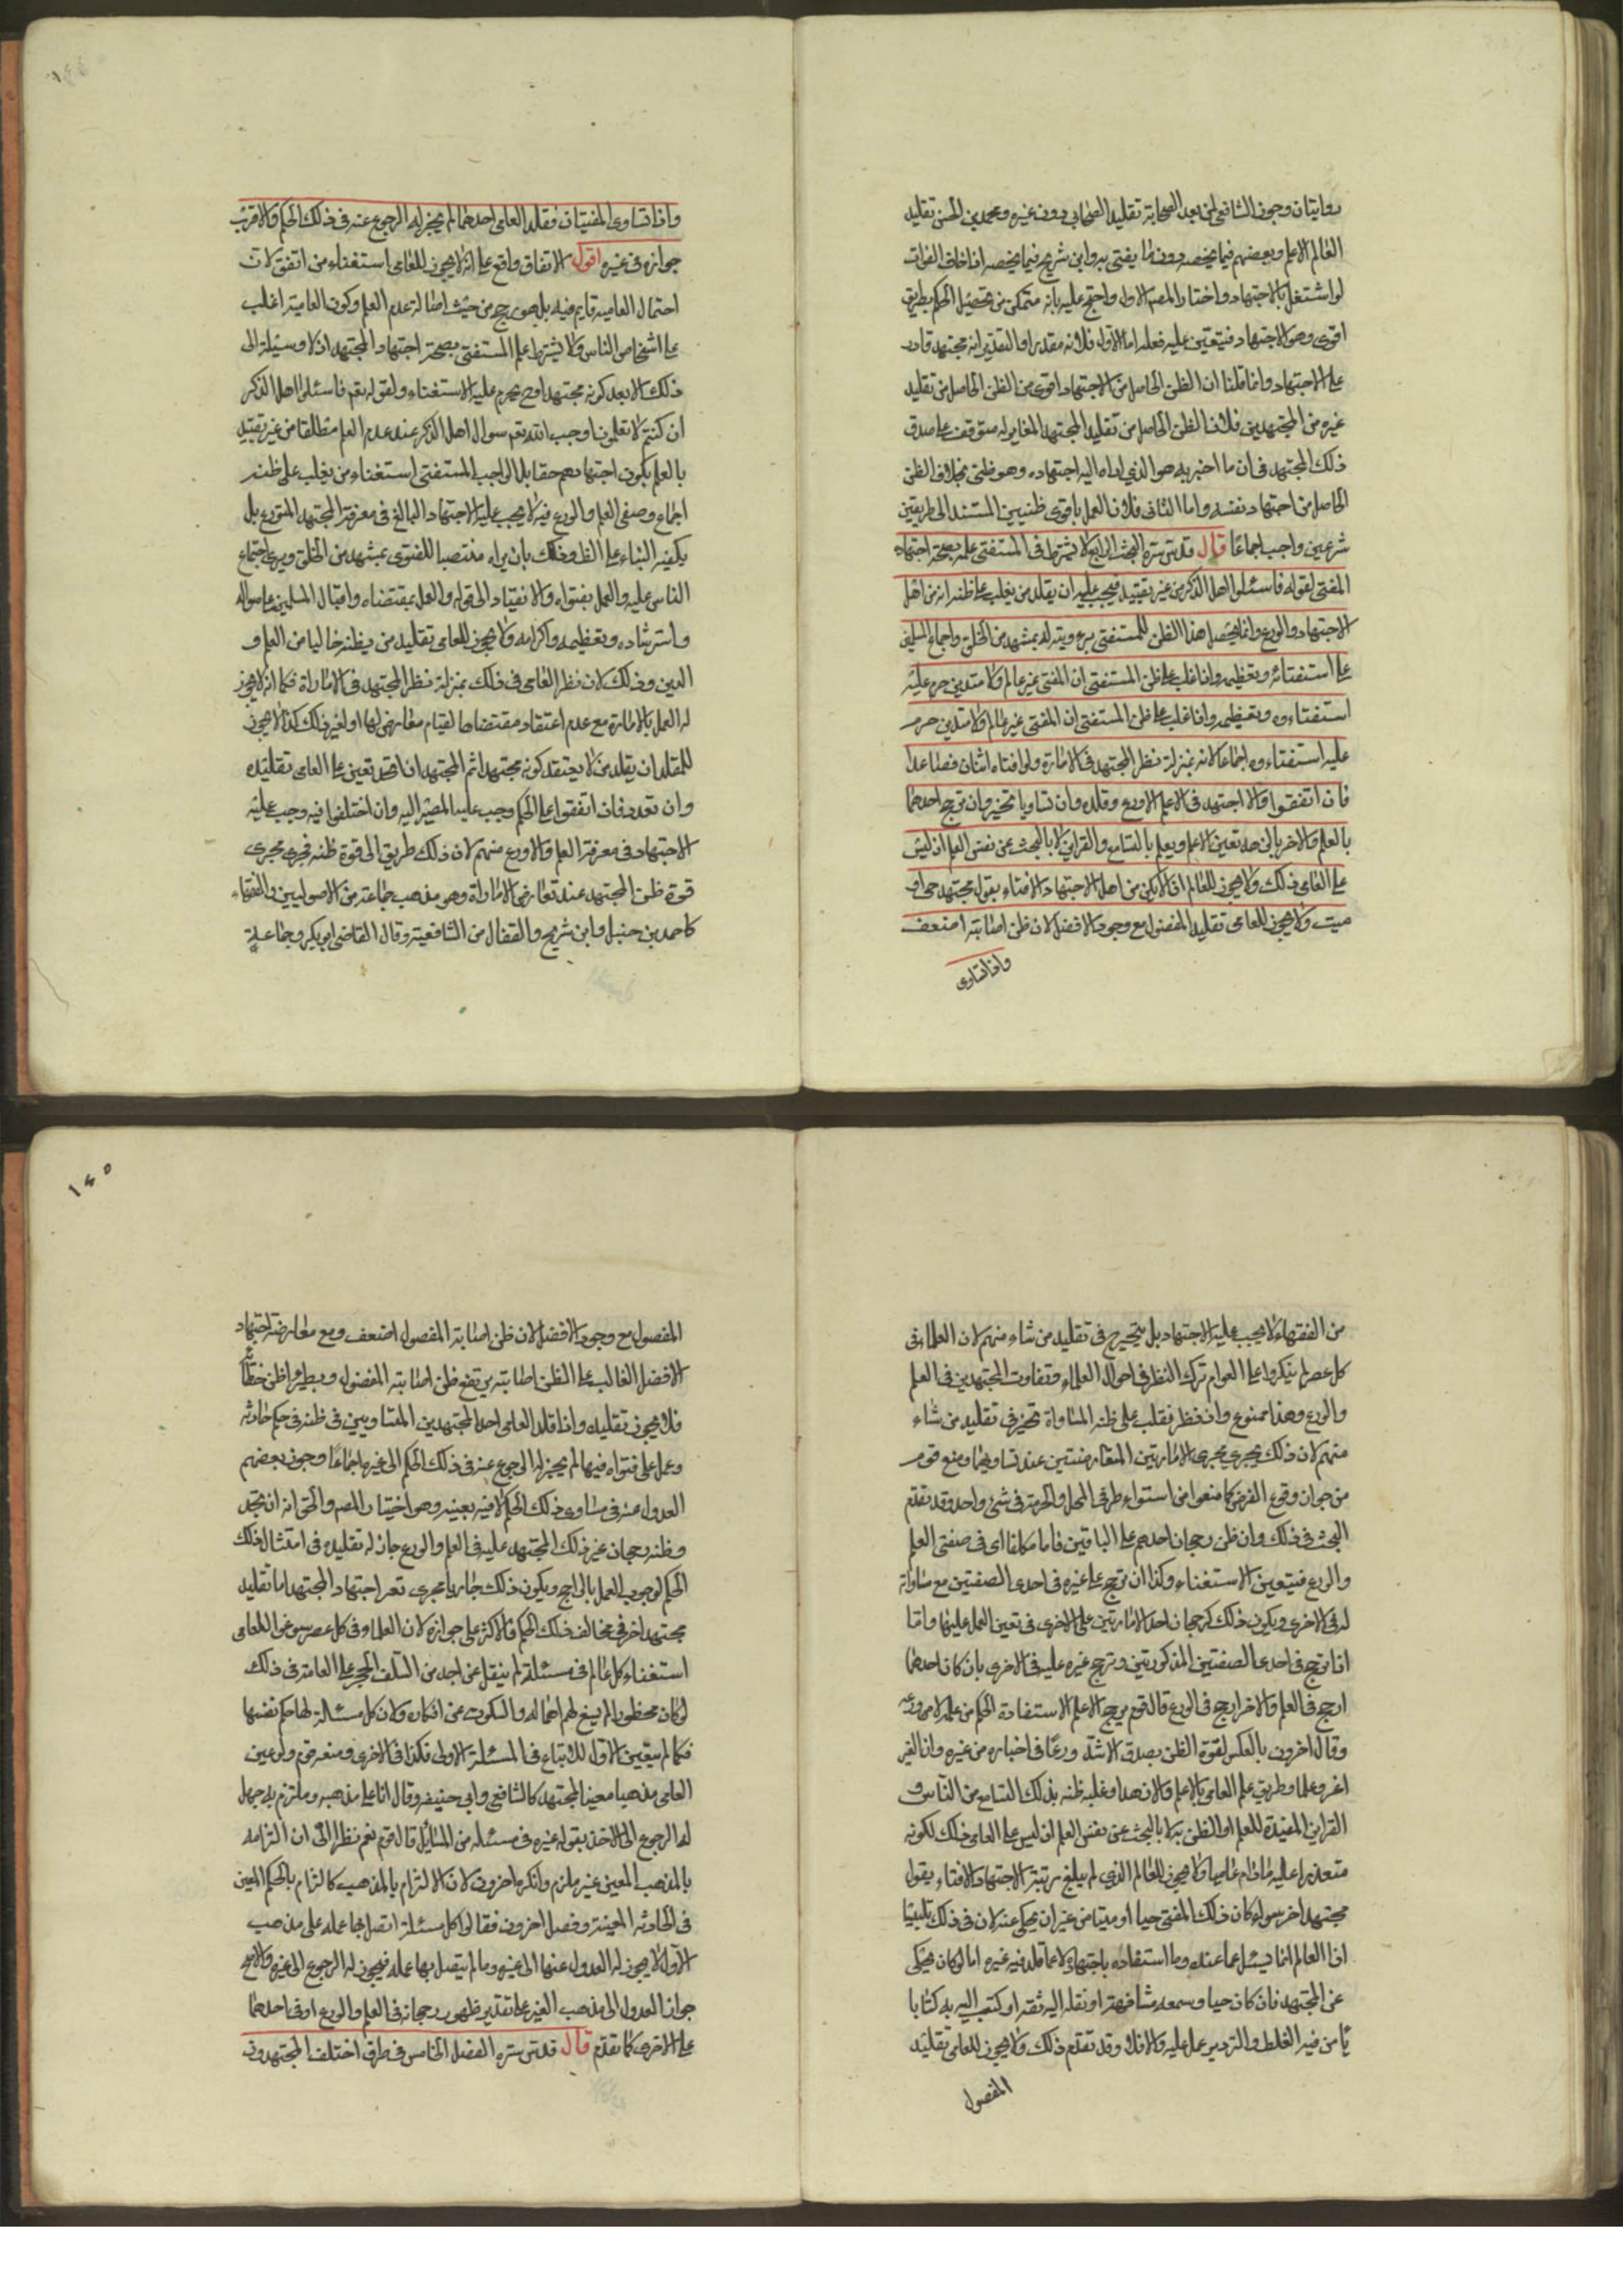 روايتان وجوز الشافعي لمن بعد الصحابة تقليد الصحابي دون غيره ومحمد بن الحسن تقليد
العالم الاعلم وبعضهم فيما يخصه دون ما يفتي به وابن شريح فيما يخصه اذا خاف الفوات
لو اشتغل بالاجتهاد واختار المصم الاول واحتج عليه بانه متمكن من تحصيل الحكم بطريق
اقوى وهو الاجتهاد فيتعين عليه فعله اما الاول فلانه مقدر اذ التقدير انه مجتهد قادر
على الاجتهاد وانما قلنا ان الظن الحاصل من الاجتهاد اقوى من الظن الحاصل من تقليد
غيره من المجتهدين فلان الظن الحاصل من تقليد المجتهد المغاير له متوقف على صدق
ذلك المجتهد في ان ما اخبر به هو الذي اداه اليه اجتهاده وهو ظني بخلاف الظن
الحاصل من اجتهاد نفسه واما الثاني فلان العمل باقوى ظنيين المستند الى طريقين
شرعيين واجب اجماعا قال قدس سره البحث الرابع لا يشترط في المستفتي علمه بصحة اجتهاد
المفتي لقوله فاسئلوا اهل الذكر من غير تقييد فيجب عليه ان يقلد من يغلب على ظنه انه من اهل
الاجتهاد والورع وانما يحصل هذا الظن للمستفتي برؤيته له بمشهد من الخلق واجماع المسلمين
على استفتائه وتعظيمه واذا غلب على ظن المستفتي ان المفتي غير عالم ولا متدين حرم عليه
استفتاءوه وتعظيمه واذا غلب على ظن المستفتي ان المفتي غير عالم ولا متدين حرم
عليه استفتاءوه اجماعا لانه بمنزلة نظر المجتهد في الامارة ولو افتاه اثنان فصاعدا
فان اتفقوا والا اجتهد في الاعلم الاورع وقلده وان تساويا تخير وان ترجح احدهما
بالعلم والاخر بالزهد تعين الاعلم ويعلم بالتسامع والقراين لا بالبحث عن نفس العلم اذ ليس
على العامي ذلك ولا يجوز للعالم اذا لم يكن من اهل الاجتهاد الافتاء بقول مجتهد حي او
ميت ولا يجوز للعامي تقليد المفضول مع وجود الافضل لان ظن اصابته اضعف
واذا تساوى
واذا تساوى المفتيان فقلد العامي احدهما لم يجز له الرجوع عنه في ذلك الحكم والاقرب
جوازه في غيره اقول الاتفاق واقع على انه لا يجوز للعامي استفتاء من اتفق لان
احتمال العامية قايم فيه بل هو ارجح من حيث اصالة عدم العلم وكون العامية اغلب
على اشخاص الناس ولا يشترط علم المستفتي بصحة اجتهاد المجتهد اذ لا وسيلة الى
ذلك الا بعد كونه مجتهدا وح يحرم عليه الاستفتاء ولقوله تعم فاسئلوا اهل الذكر
ان كنتم لا تعلمون اوجب الله تعم سوال اهل الذكر عند عدم العلم مطلقا من غير تقييد
بالعلم بكون اجتهادهم حقا بل الواجب المستفتي استفتاء من يغلب على ظنه
اجماع وصفي العلم والورع فيه لا يجب عليه الاجتهاد البالغ في معرفة المجتهد المتورع بل
يكفيه البناء على الظ وذلك بان يراه منتصبا للفتوى بمشهد من الخلق ويرى اجتماع
الناس عليه والعمل بفتواه والانقياد الى قوله والعمل بمقتضاه واقبال المسلمين على سواله
واسترشاده وتعظيمه واكرامه ولا يجوز للعامي تقليد من يظنه خاليا من العلم و
الدين وذلك لان نظر العامي في ذلك بمنزلة نظر المجتهد في الامارة فكما انه لا يجوز
له العمل بالامارة مع عدم اعتقاد مقتضاها لقيام معارض لها او لغير ذلك كذا لا يجوز
للمقلد ان يقلد من لا يعتقد كونه مجتهدا ثم المجتهد ان اتحد تعين على العامي تقليده
وان تعدد فان اتفقوا على الحكم وجب عليه المصير اليه وان اختلفوا فيه وجب عليه
الاجتهاد في معرفة العلم والاورع منهم لان ذلك طريق الى قوة ظنه فجرى مجرى
قوة ظن المجتهد عند تعارض الامارات وهو مذهب جماعة من الاصوليين والفقهاء
كاحمد بن حنبل وابن شريح والقفال من الشافعية وقال القاضي ابو بكر وجماعة
١٤٥
من الفقهاء لا يجب عليه الاجتهاد بل يتخير في تقليد من شاء منهم لان العلماء في
كل عصر لم ينكروا على العوام ترك النظر في احوال العلماء وتفاوت المجتهدين في العلم
والورع وهذا ممنوع وان نظر فغلب على ظنه المساواة تخير في تقليد من شاء
منهم لان ذلك يجري مجرى الامارتين المتعارضتين عند تساويهما ومنع قوم
من جواز وقوع الفرض كما منعوا من استواء طرفي الحل والحرمة في شئ واحد وقد تقدم
البحث في ذلك وان ظن رجحان احدهم على الباقين فاما مكلفا اي في صفتي العلم
والورع فيتعين الاستفتاء وكذا ان ترجح على غيره في احدى الصفتين مع مساواته
له في الاخرى ويكون ذلك كرجحان احد الامارتين على الاخرى في تعين العمل عليها واما
اذا ترجح في احدى الصفتين المذكورتين وترجح غيره عليه في الاخرى بان كان احدهما
ارجح في العلم والاخر ارجح في الورع قال قوم يرجح الاعلم الاستفادة الحكم من علمه لا من ورعه
وقال اخرون بالعكس لقوة الظن بصدق الاشد ورعا في اخباره من غيره
وطريق علم العامي بالاعلم والازهد او غلبة ظنه بذلك التسامع من الناس و
القراين المفيدة للعلم او الظن به لا بالبحث عن نفس العلم اذ ليس على العامي ذلك لكونه
متعذرا عليه ما دام عاميا ولا يجوز للعالم الذي لم يبلغ رتبة الاجتهاد الافتاء بقول
مجتهد اخر سواء كان ذلك المفتي حيا او ميتا من غير ان يحكي عنه لان في ذلك تلبيسا
اذا العالم انما يسئل عما عنده وما استفاده باجتهاده لا عما قلد فيه غيره اما لو كان يحكي
عن المجتهد فان كان حيا وسمعه مشافهة او نقله اليه ثقة او كتب اليه به كتابا
يأمن فيه الغلط والتزوير عمل عليه والا فلا وقد تقدم ذلك ولا يجوز للعامي تقليد
المفضول
المفضول مع وجود الافضل لان ظن اصابة المفضول اضعف ومع معارضة اجتهاد
الافضل الغالب على الظن اصابته يرتفع ظن اصابة المفضول ويطرأ ظن خطائه
فلا يجوز تقليده واذا قلد العامي احد المجتهدين المتساويين في ظنه في حكم حادثه
وعمل على فتواه فيها لم يجز له الرجوع عنه في ذلك الحكم الى غيره اجماعا وجوز بعضهم
العدول عنه في مساوي ذلك الحكم لا فيه بعينه وهو اختيار المصم والحق انه ان تجدد
وظنه رجحان غير ذلك المجتهد عليه في العلم والورع جاز له تقليده في امتثال ذلك
الحكم لوجوب العمل بالراجح ويكون ذلك جاريا مجرى تغير اجتهاد المجتهد اما تقليد
مجتهد اخر في مخالف ذلك الحكم فالاكثر على جوازه لان العلماء في كل عصر سوغوا للعامي
استفتاء كل عالم في مسئلة ولم ينقل عن احد من السلف الحجر على العامة في ذلك
لو كان محظورا لم يسغ لهم اهماله والسكوت عن انكاره ولان كل مسئلة لها حكم نفسها
فكما لم يتعين الاول للاتباع في المسئلة الاولى فكذا في الاخرى ومنعه قوم ولو عين
العامي مذهبا معينا لمجتهد كالشافعي وابي حنيفه وقال انا على مذهبه وملتزم به فهل
له الرجوع الى الاخذ بقوله غيره في مسئله من المسائل قال قوم نعم نظرا الى ان التزامه
بالمذهب المعين غير ملزم وانكره اخرون لان الالتزام بالمذهب كالتزام بالحكم المعين
في الحادثه المعينة وفصل اخرون فقالوا كل مسئلة اتصل بها عمله على مذهب
الاول لا يجوز له العدول عنها الى غيره وما لم يتصل بها عمله فيجوز له الرجوع الى غيره والاصح
جواز العدول الى مذهب الغير على تقدير ظهور رجحانه في العلم والورع او في احدهما
على الاخرى كما تقدم قال قدس سره الفصل الخامس في طرق اختلف المجتهدون